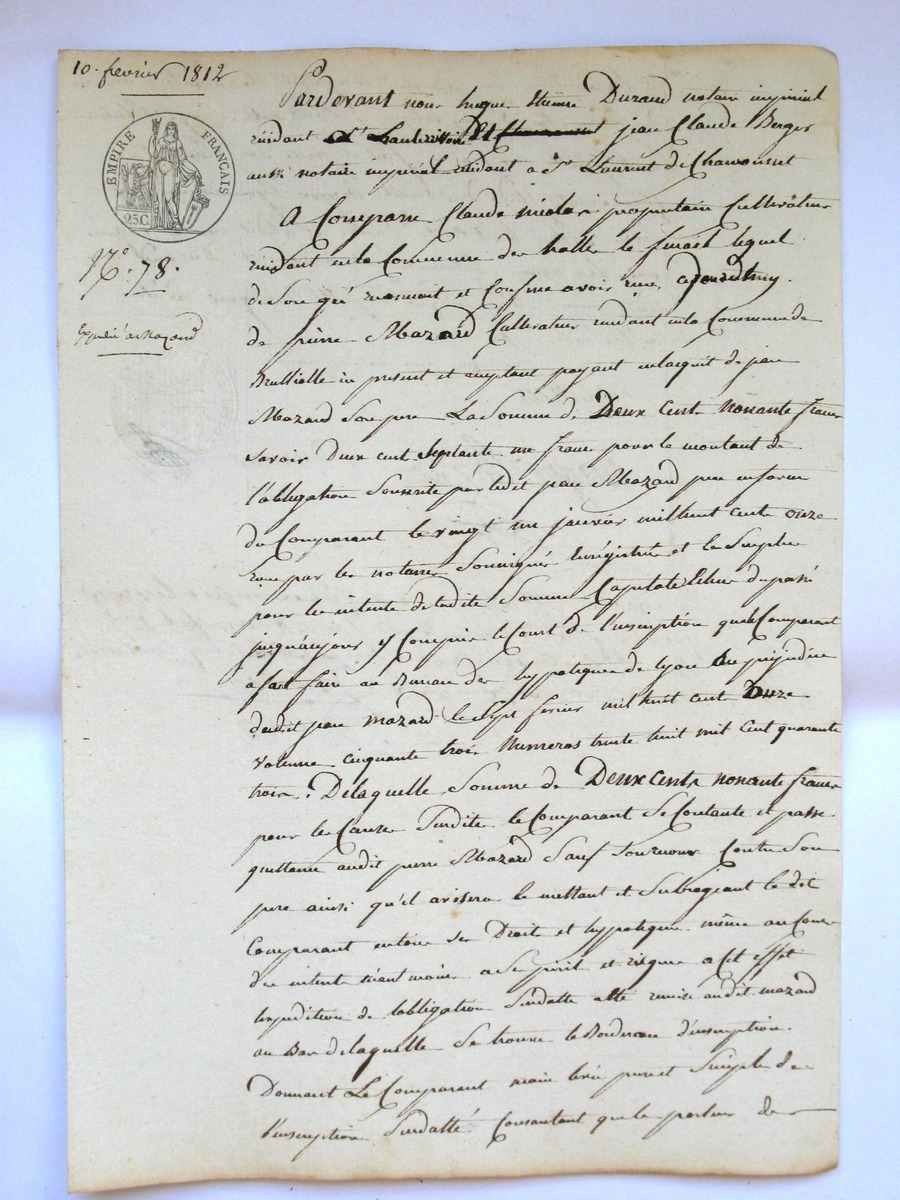 10. fevrier 1812
EMPIRE FRANÇAIS
25C
N° 78.
Expédié à Mazard
Pardevant nous hugue Durand notaire imperial
residant jean Claude Berger
aussi notaire imperial residant a St Laurent de Chamousset
A Comparu Claude nicolas proprietaire Cultivateur
residant en la Commune de halle le lequel
de Son gré reconnait et Confesse avoir reçu ajourdhuy
de pierre Mazard Cultivateur residant en la Commune de
Brulliolle ici present et acceptant payant en lacquit de jean
Mazard Son pere La Somme de Deux Cent nonante francs
Savoir deux cent Septante un franc pour le montant de
l'obligation Souscrite par ledit jean Mazard pere en faveur
du Comparant le vingt un janvier mil huit cent onze
reçue par les notaires Soussignés Enrégistrée et le Surplus
pour les interets de ladite Somme Capitale Echus du passé
jusqu'à ce jour y Compris le Cout de l'inscription que le Comparant
a fait faire au Bureau des hypoteques de lyon Au préjudice
dudit jean mazard le Sept fevrier mil huit cent Onze
volume cinquante trois Numeros trente huit mil cent quarante
trois. De laquelle Somme de Deux Cents nonante francs
pour les Causes Susdites le Comparant Se Contante et passe
quittance audit pierre Mazard Sauf Son recours Contre Son
pere ainsi qu'il avisera le mettant et Subrogeant le dit
Comparant en tous Ses Droit et hypoteque même au Cours
des interets néantmoins a Ses peril et risque a Cet effet
Expedition de l'obligation Susdatté a été remise audit mazard
au Bas de laquelle Se trouve le Bordereau d'inscription.
Donnant Le Comparant main levée pure et Simple de
l'inscription Susdatté Consentant que le porteur de